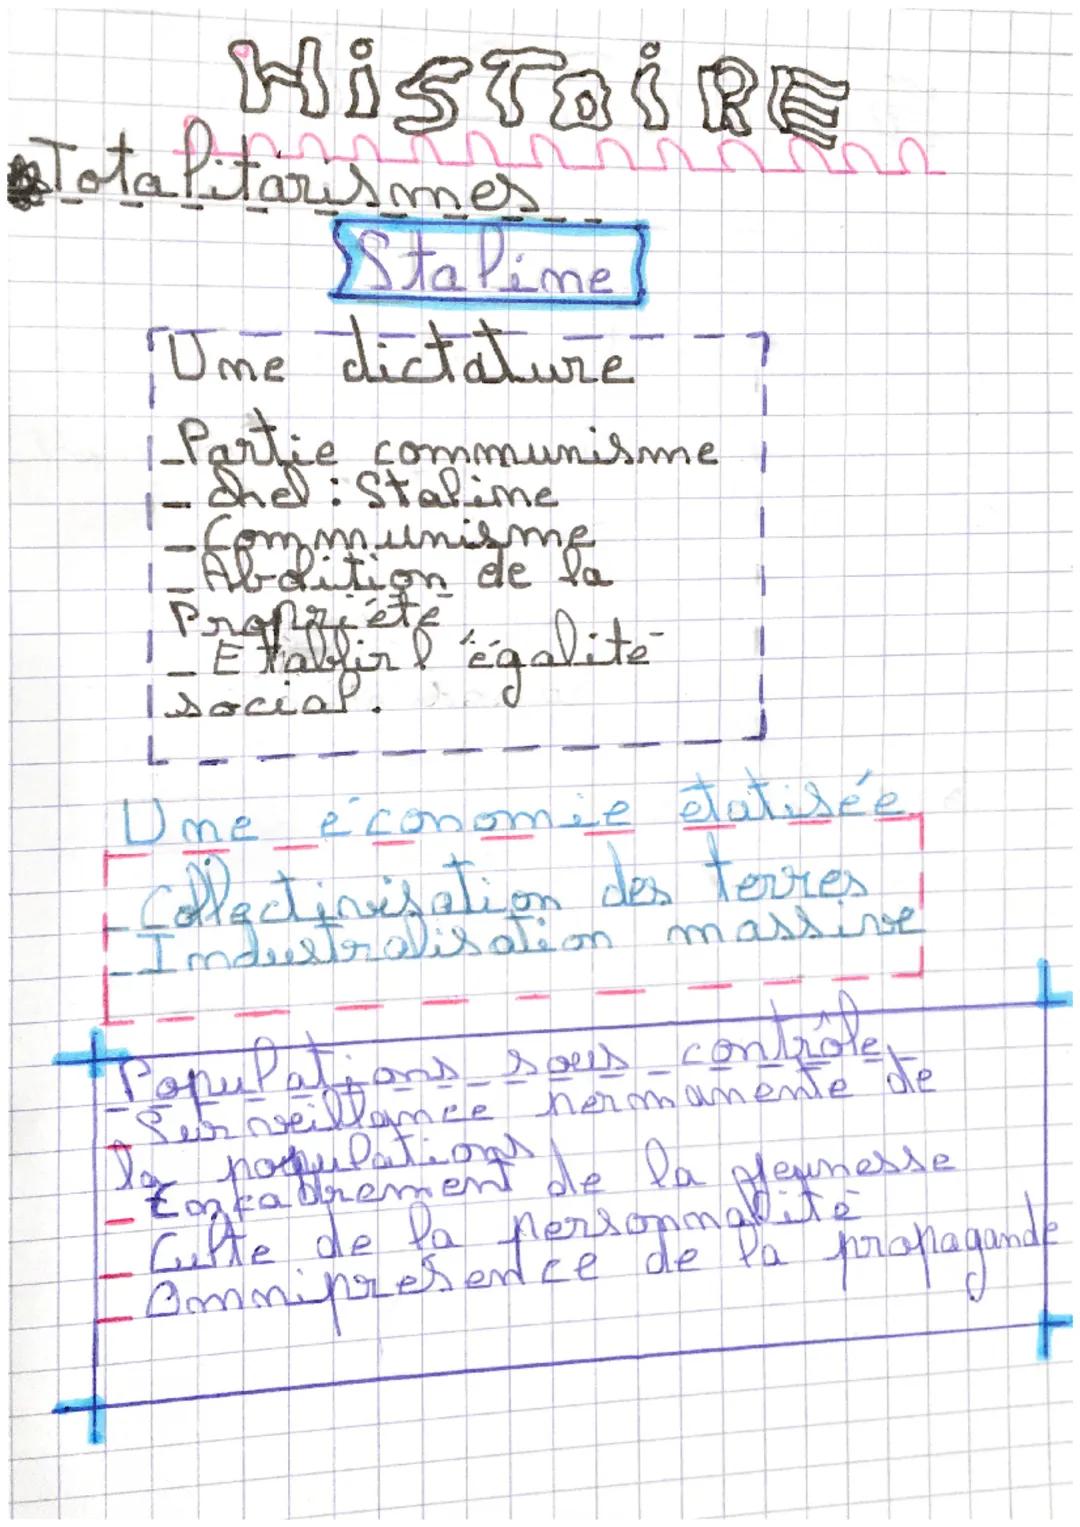 HiSToiRE
Totalitarismes
Staline
Une dictature
- Partie communisme
- Chef : Staline
- Communisme
- Abolition de la
Propriété
- Etablir l'égalité
social.
Une économie étatisée
- Collectivisation des terres
- Industralisation massive
Populations sous contrôle
- Surveillance permanente de
la populations
- Encadrement de la jeunesse
- Culte de la personnalité
- Omniprésence de la propagande